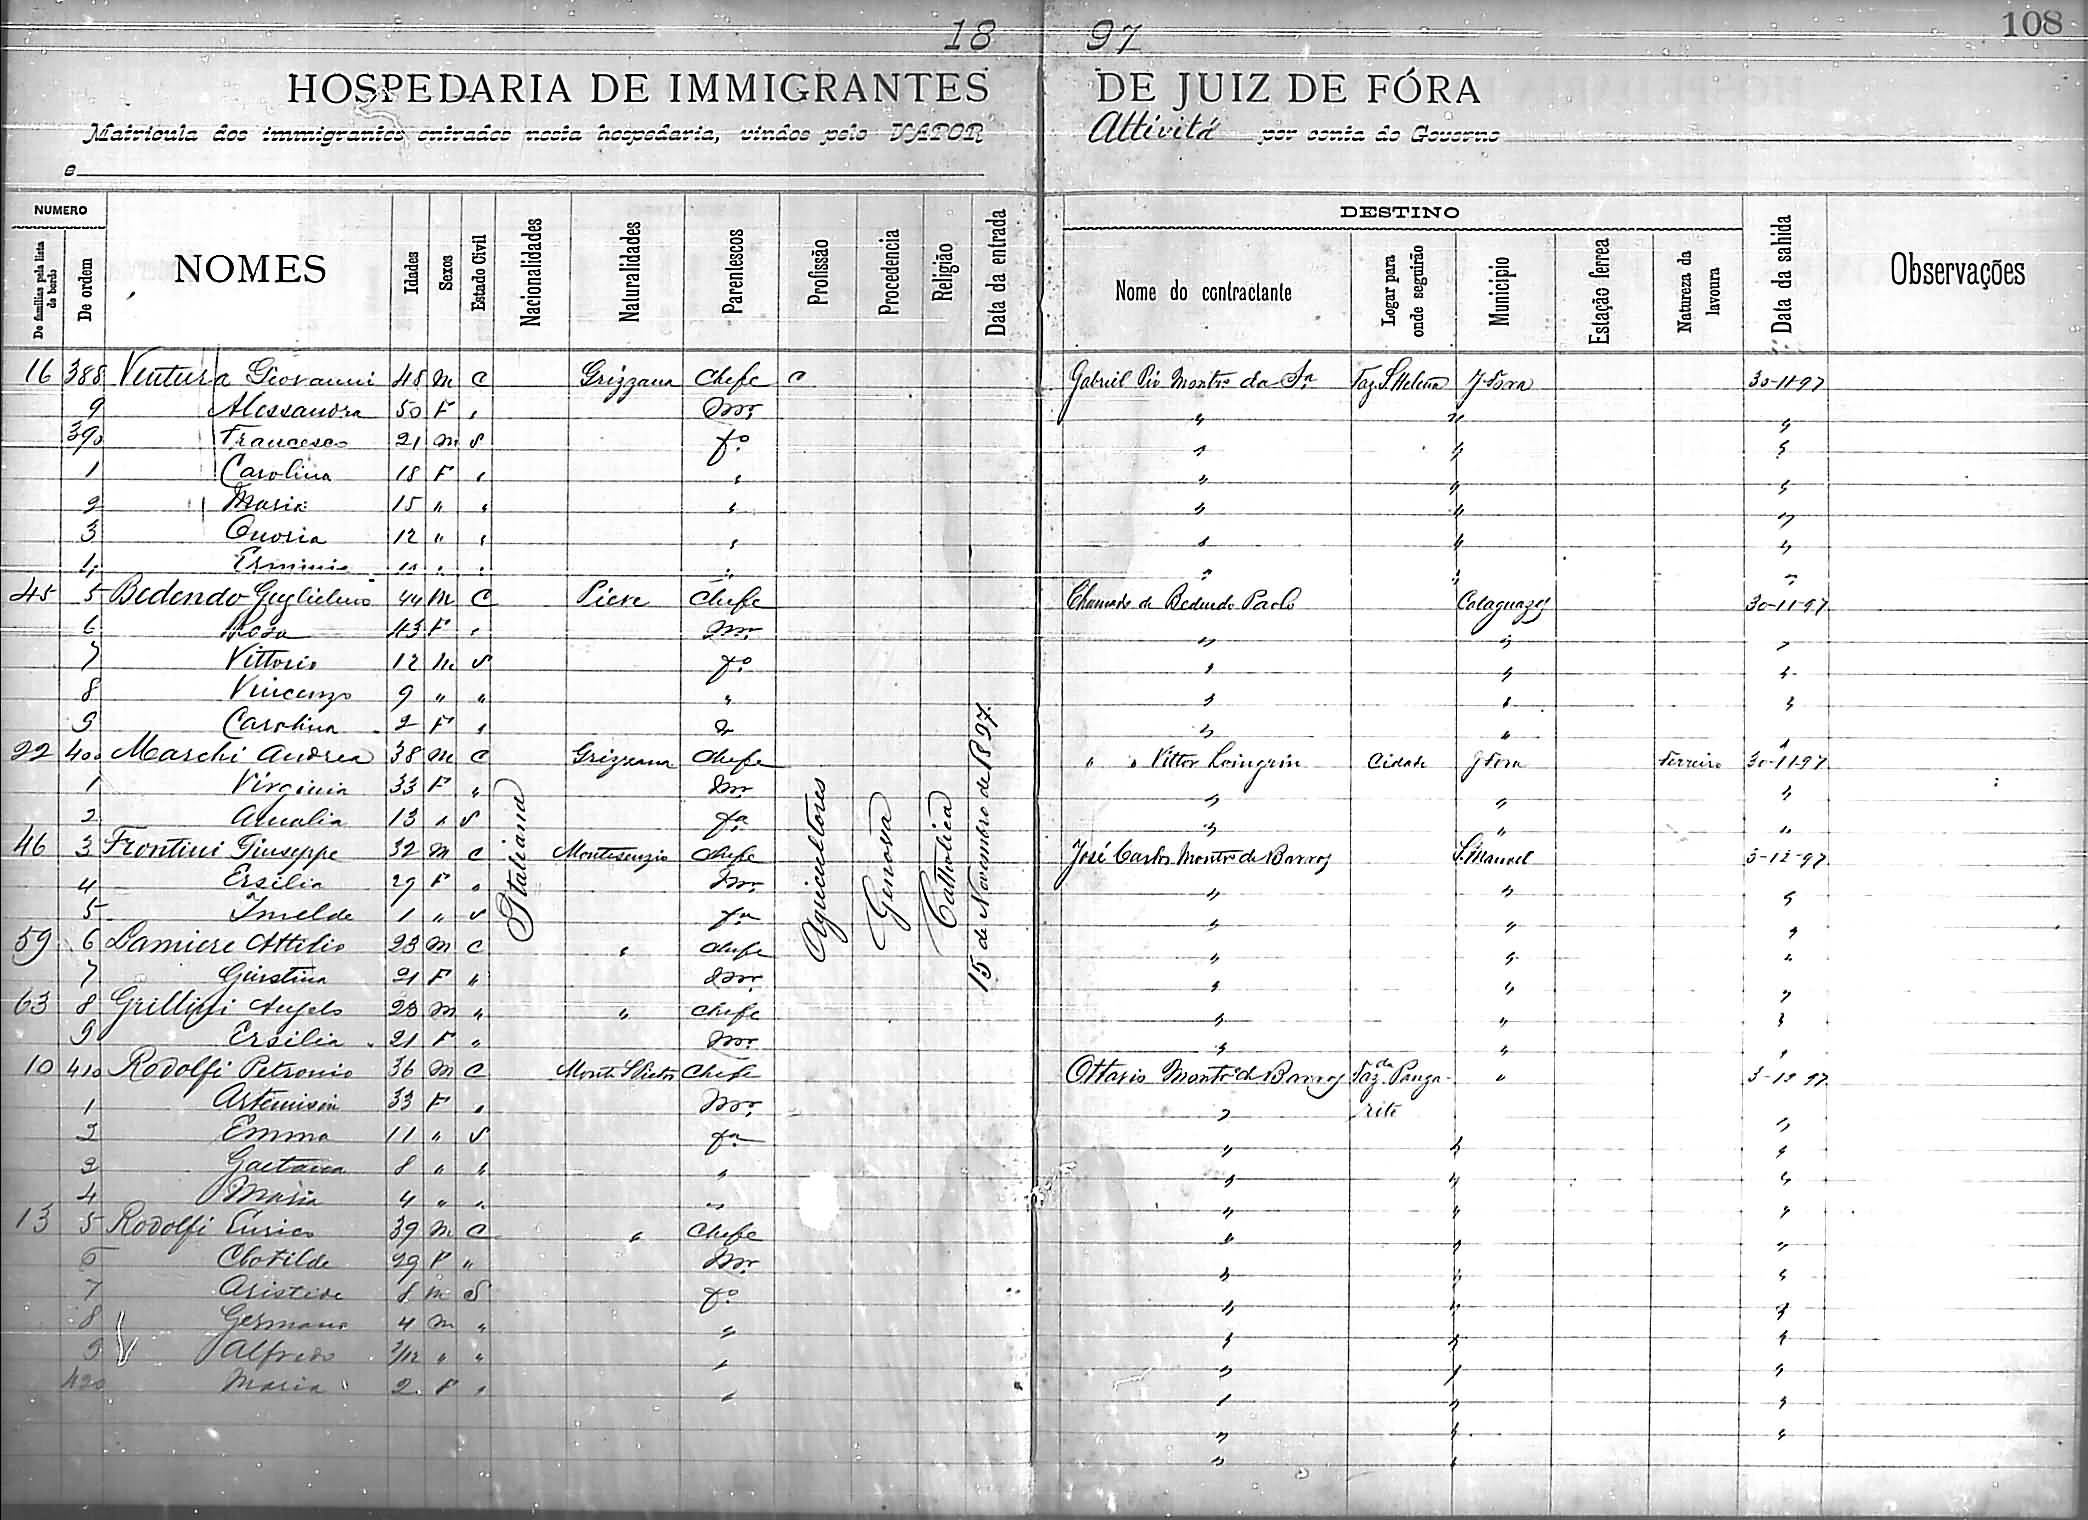 18 97
108
HOSPEDARIA DE IMMIGRANTES DE JUIZ DE FÓRA
Matricula dos immigrantes entrados nesta hospedaria, vindos pelo VAPOR Attivitá por conta do Governo
e
NUMERO
De familias pela lista de bordo
De ordem
NOMES
Idades
Sexos
Estado Civil
Nacionalidades
Naturalidades
Parentescos
Profissão
Procedencia
Religião
Data da entrada
DESTINO
Nome do contractante
Logar para onde seguirão
Municipio
Estação ferrea
Natureza da lavoura
Data da sahida
Observações
16 388 Ventura Giovanni 48 M C Grizzana Chefe C Gabriel Pio Montro da Sa Faz. S. Helena J. Fora 30-11-97
9 Alessandra 50 F " Mer " " "
390 Francesco 21 M S fo " " "
1 Carolina 18 F " " " " "
2 Maria 15 " " " " " "
3 12 " " " " " "
4 Erminia " " " " " "
45 5 Bedendo Guglielmo 44 M C Pieve Chefe Chamado de Bedendo Paolo Cataguazes 30-11-97
6 Rosa 43 F " Mer " " "
7 Vittorio 12 M S fo " " "
8 Vincenzo 9 " " " " " "
9 Carolina 2 F " " " "
22 400 Marchi Andrea 38 M C Grizzana Chefe " " Vittor Cidade J Fora Ferreiro 30-11-97
1 Virginia 33 F " Mer " " "
2 Amalia 13 " S fa " " "
46 3 Frontini Giuseppe 32 M C Chefe José Carlos Montro de Barros S. Manoel 3-12-97
4 Ersilia 29 F " Mer " " "
5 Imelde 1 " S fa " " "
59 6 Lamiere Attilio 23 M C " Chefe " " "
7 Giustina 21 F " Mer " " "
63 8 Grillini Angelo 28 M " " Chefe " " "
9 Ersilia 21 F " Mer " " "
10 410 Rodolfi Petronio 36 M C Monte S Pietro Chefe Ottavio Montro de Barros Faz. da Panga- " 3-12-97
1 Artemisia 33 F " Mer " rite "
2 Emma 11 " S fa " " "
3 Gaetana 8 " " " " " "
4 Maria 4 " " " " " "
13 5 Rodolfi Enrico 39 M C " Chefe " " "
6 Clotilde 29 F " Mer " " "
7 Aristide 8 M S fo " " "
8 Germano 4 M " " " " "
9 Alfredo " " " " " "
420 Maria 2 F " " " " "
" " "
" "
Italiana
Agricultores
Genova
Catholica
15 de Novembro de 1897